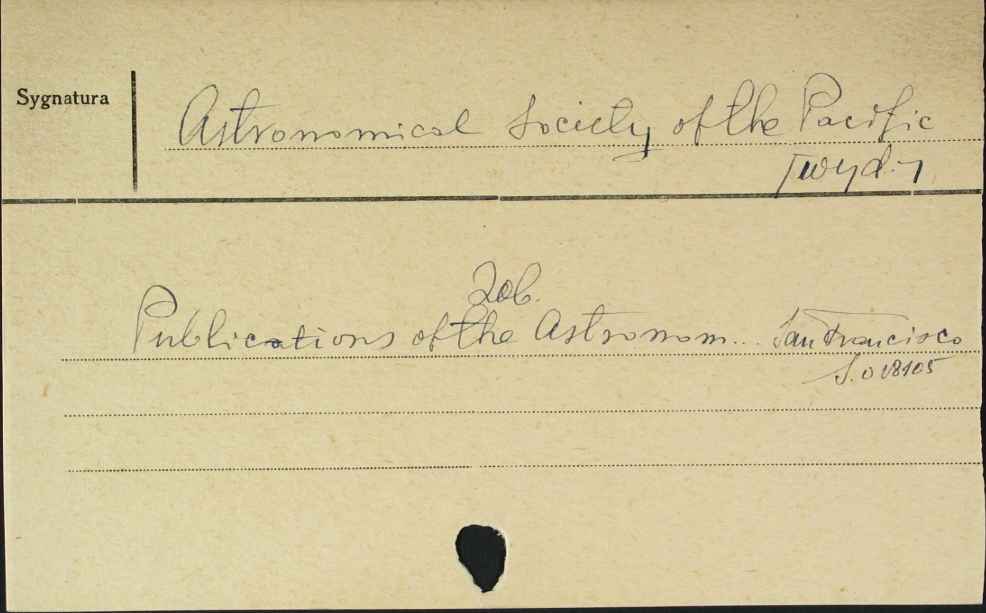 Sygnatura
Astronomical Society of the Pacific
[wyd.]
Zob.
Publications of the Astronom... San Francisco